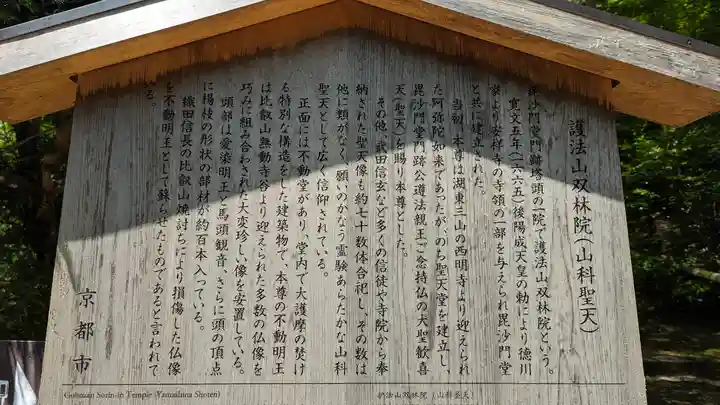 護法山双林院(山科聖天)
毘沙門堂門跡塔頭の一院で護法山双林院という。
寛文五年(一六六五)後陽成天皇の勅により徳川
家より安祥寺の寺領の一部を与えられ毘沙門堂
と共に建立された。
当初、本尊は湖東三山の西明寺より迎えられ
た阿弥陀如来であったが、のち聖天堂を建立し、
毘沙門堂門跡公遵法親王ご念持仏の大聖歓喜
天(聖天)を賜り本尊とした。
その他、武田信玄など多くの信徒や寺院から奉
納された聖天像も約七十数体合祀し、その数は
他に類がなく願いのかなう霊験あらたかな山科
聖天として広く信仰されている。
正面には不動堂があり、堂内で大護摩の焚け
る特別な構造をした建築物で、本尊の不動明王
は比叡山無動寺谷より迎えられた多数の仏像を
巧みに組み合わされた大変珍しい像を安置している。
頭部は愛染明王と馬頭観音、さらに頭の頂点
に楊枝の形状の部材が約百本入っている。
織田信長の比叡山焼討ちにより損傷した仏像
を不動明王として蘇らせたものであると言われて
いる。
京都市
Gohozan Sorin-in Temple (Yamashina Shoten)
护法山双林院(山科圣天)